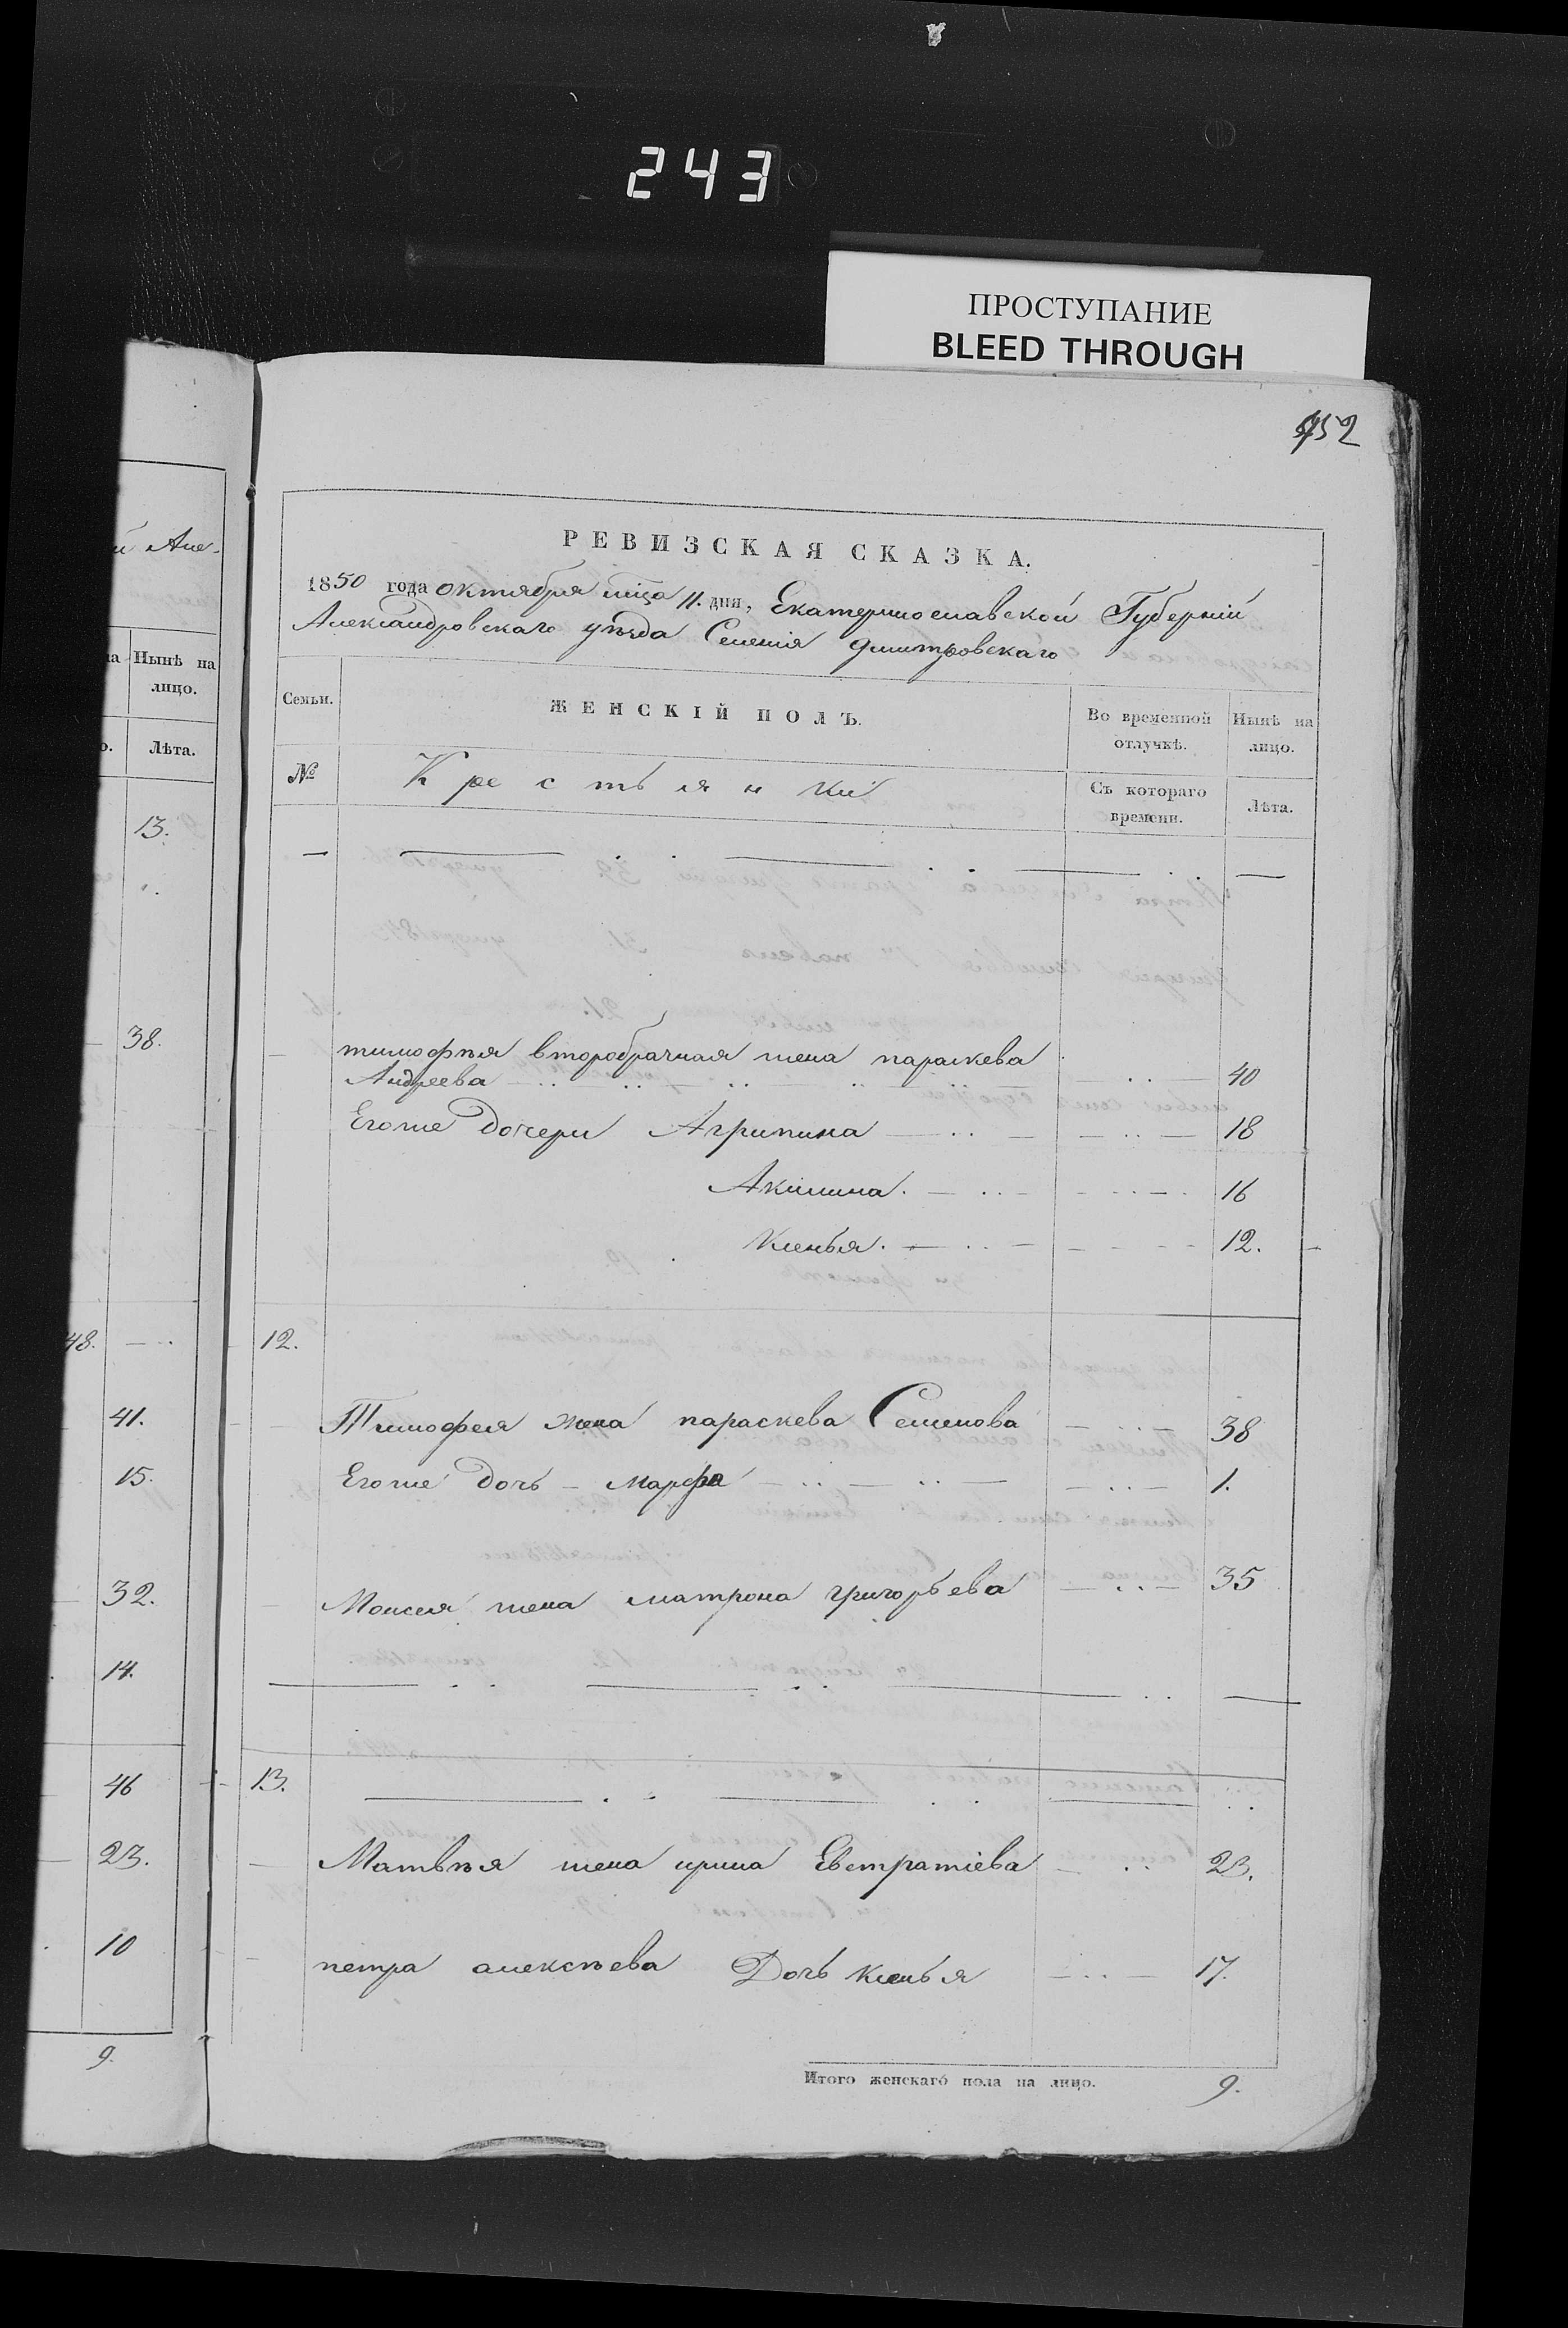 243
ПРОСТУПАНИЕ
BLEED THROUGH
152
й Але-
Нынѣ на
лицо.
Лѣта.
13.
38.
48.
41.
15.
32.
14.
46
23.
10
9.
РЕВИЗСКАЯ СКАЗКА.
1850 года октября мца 11. дня, Екатеринославской Губерніи
Александровскаго уѣзда Селенія дмитровскаго
Семьи. ЖЕНСКІЙ ПОЛЪ. Во временной отлучкѣ. Нынѣ на лицо.
№ Крестьянки Съ котораго времени. Лѣта.
тимофѣя второбрачная жена параскева
Андреева 40
Егоже дочери Агрипина 18
Акилина. 16
Ксенья. 12.
12.
Тимофея жена параскева Семенова 38
Егоже дочь - марфа 1.
Моисея жена матрона григорьева 35
13.
Матвѣя жена ирина Евстратіева 23.
петра алексѣева Дочь ксенья 17.
Итого женскаго пола на лицо. 9.